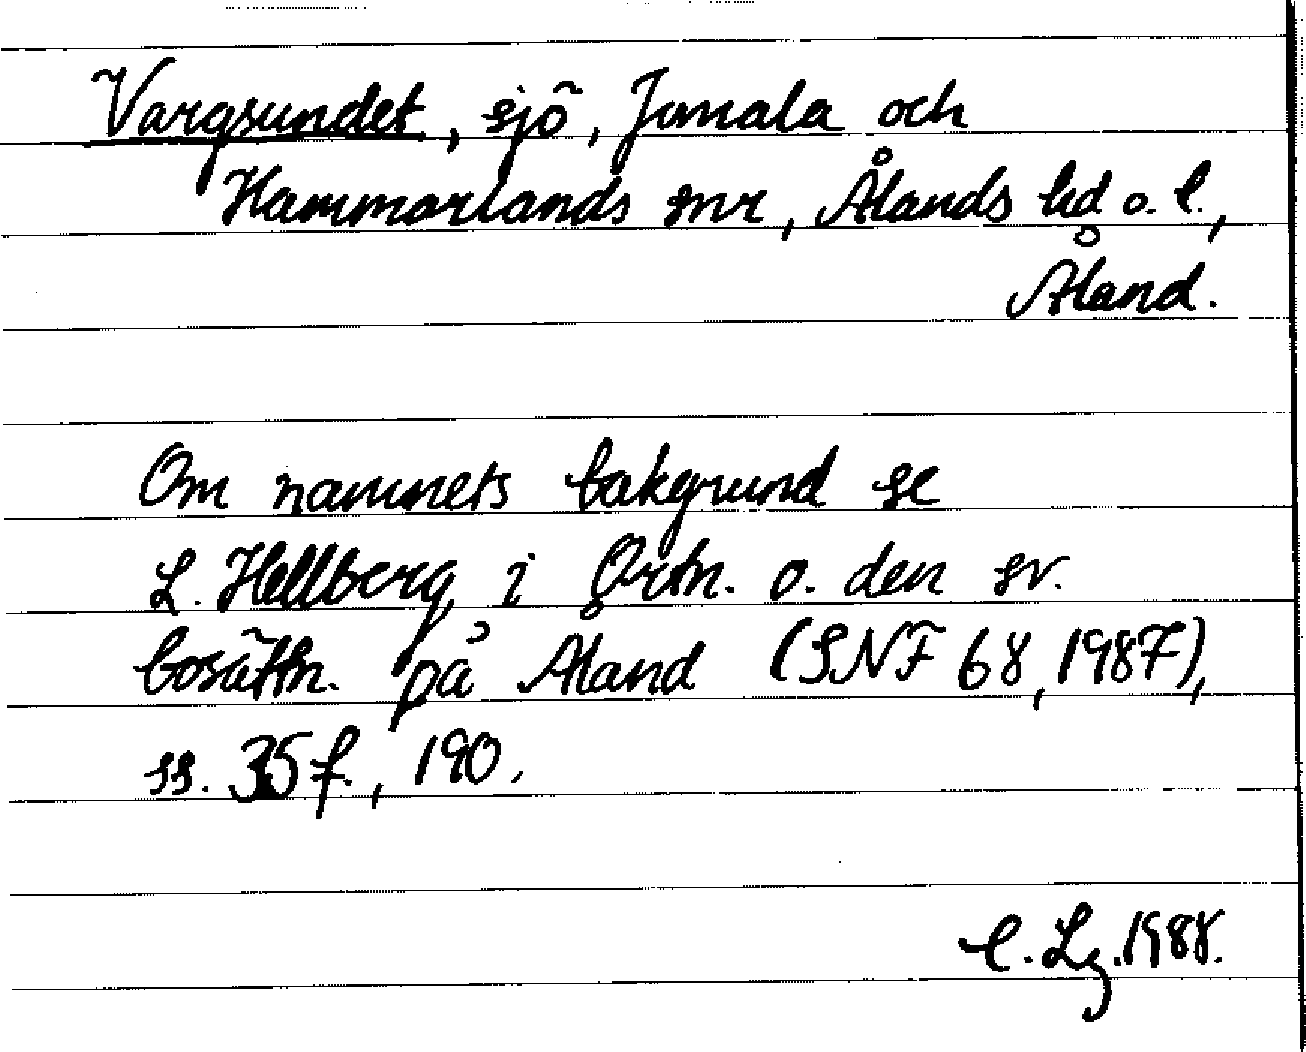 Vargsundet, sjö, Jomala och
Hammarlands snr, Ålands hd o. l.,
Åland.
Om namnets bakgrund se
L. Hellberg i Ortn. o. den sv.
bosättn. på Åland (SNF 68, 1987),
ss. 35 f., 190.
C. Lg. 1988.